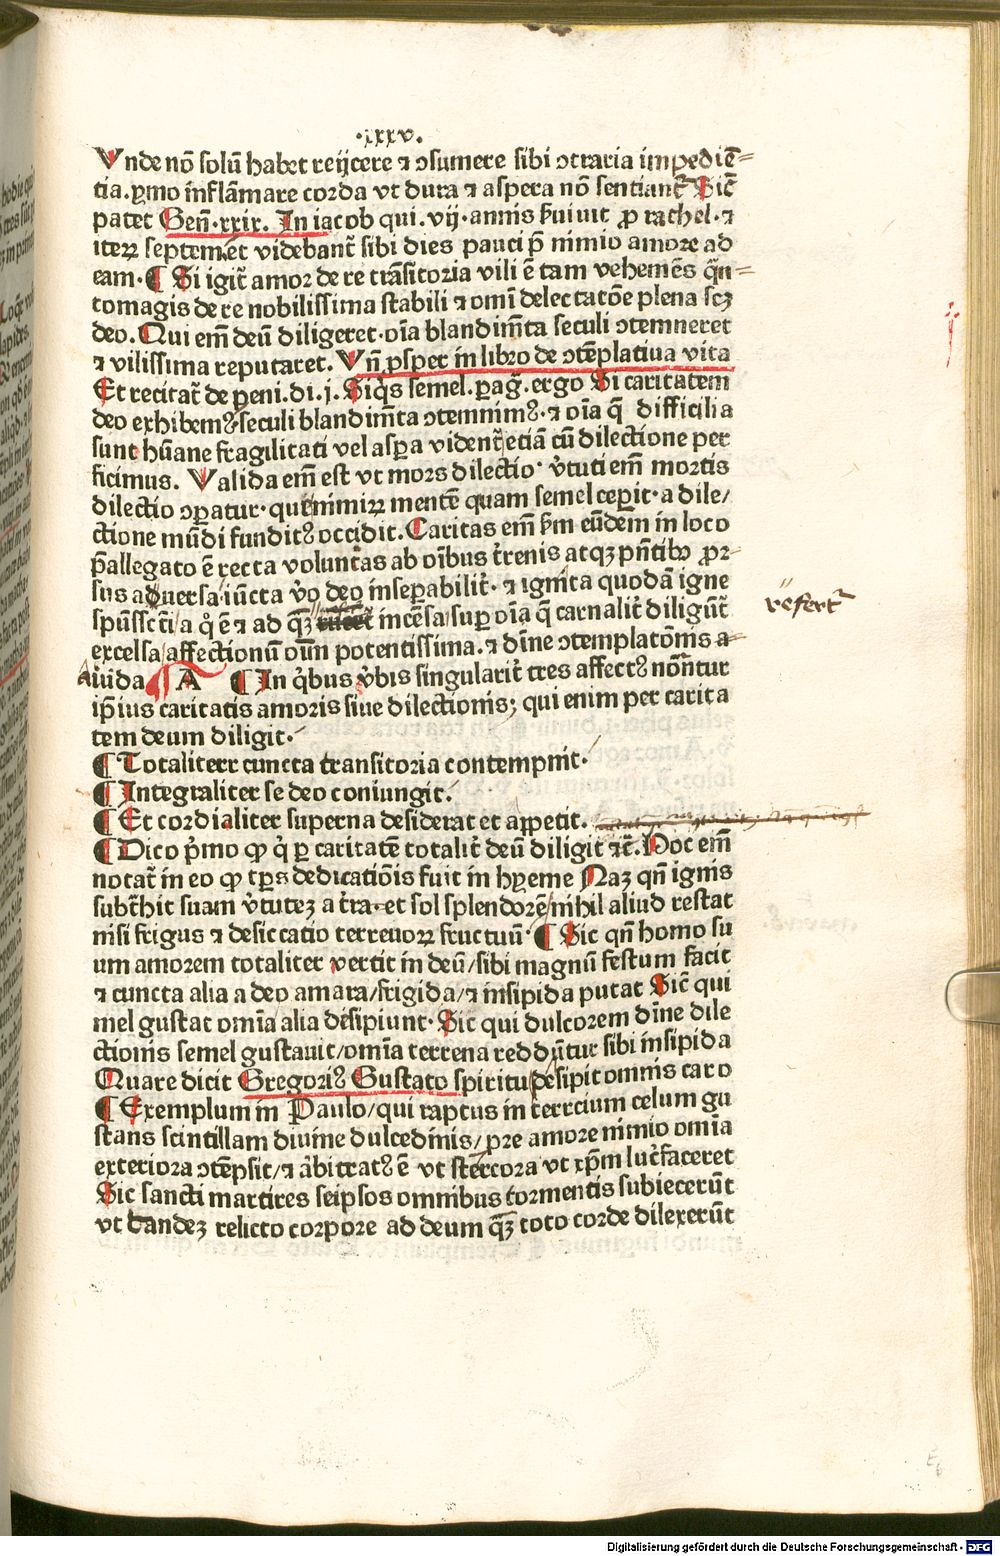 ·xxxv.
Vnde nō solū habet reijcere ⁊ ↄsumere sibi ↄtraria impediē=
tia. pͥmo inflāmare corda vt dura ⁊ aspera nō sentiant᷑ Sic̄
patet Geñ. xxix. In iacob qui. vij. annis ẜuiuit ꝓ rachel. ⁊
iteꝝ septem. et videbant᷑ sibi dies pauci p̄ nimio amore ad
eam. ¶ Si igit᷑ amor de re trāsitoria vili ē tam vehemēs q̄n=
tomagis de re nobilissima stabili ⁊ omī delectatōe plena scꝫ
deo. Qui em̄ deū diligeret. oīa blandimēta seculi ↄtemneret
⁊ vilissima reputaret. Vñ ꝓsper in libro de ↄtēplatiua vita
Et recitat᷑ de peni. di. j. Siqͥs semel. ꝑag̃. ergo Si caritatem
deo exhibemꝰ, seculi blandimēta ↄtemnimꝰ. ⁊ oīa q̄ difficilia
sunt hūane fragilitati vel asꝑa vident᷑ etiā cū dilectione per
ficimus. Valida em̄ est vt mors dilectio. v̓tuti em̄ mortis
dilectio ↄꝑatur. qm̄ nimiꝝ mentē quam semel ceꝑit. a dile/
ctione mūdi funditꝰ occidit. Caritas em̄ ẜm eūdem in loco
p̄allegato ē recta voluntas ab oībus t̓renis atqꝫ pn̄tibꝰ ꝓr=
sus aduersa / iūcta v̓o deo inseꝑabilit᷑. ⁊ ignita quodā igne
spūssct̄i / a qͦ ē ⁊ ad qͣꝫ incēsa / suꝑ oīa q̄ carnalit᷑ diligūt᷑
refert᷑
excelsa / affectionū oīm potentissima. ⁊ diīne ↄtemplatōnis a=
uida A ¶ In qͥbus v̓bis singularit᷑ tres affectꝰ nōn̄tur
ip̄ius caritatis amoris siue dilectionis; qui enim per carita
tem deum diligit.
¶ Totaliter cuncta transitoria contempnit.
¶ Integraliter se deo coniungit.
¶ Et cordialiter superna desiderat et appetit.
¶ Dico pͥmo ꝙ qͥ ꝑ caritatē totalit᷑ deū diligit ⁊c̄. Hoc em̄
notat᷑ in eo ꝙ tꝑs dedicatiōis fuit in hyeme Naꝫ qn̄ ignis
subt̓hit suam v̓tuteꝫ a t̓ra. et sol splendorē / nihil aliud restat
nisi frigus ⁊ desiccatio terrenoꝝ fructuū. ¶ Sic qn̄ homo su
um amorem totaliter vertit in deū / sibi magnū festum facit
⁊ cuncta alia a deo amara / frigida / ⁊ insipida putat Sic̄ qui
mel gustat omīa alia desipiunt. Sic qui dulcorem diīne dile
ctionis semel gustauit / omīa terrena reddūtur sibi insipida
Quare dicit Gregoriꝰ Gustato spiritu desipit omnis caro
¶ Exemplum in Paulo / qui raptus in terrcium celum gu
stans scintillam diuine dulcedinis / p̄re amore nimio omīa
exteriora ↄtēpsit / ⁊ ar̄bitratꝰ ē vt stercora vt xp̄m luc̓faceret
Sic sancti martires seipsos omnibus tormentis subiecerūt
vt tandeꝫ relicto corpore ad deum qͣꝫ toto corde dilexerūt
Digitalisierung gefördert durch die Deutsche Forschungsgemeinschaft - DFG